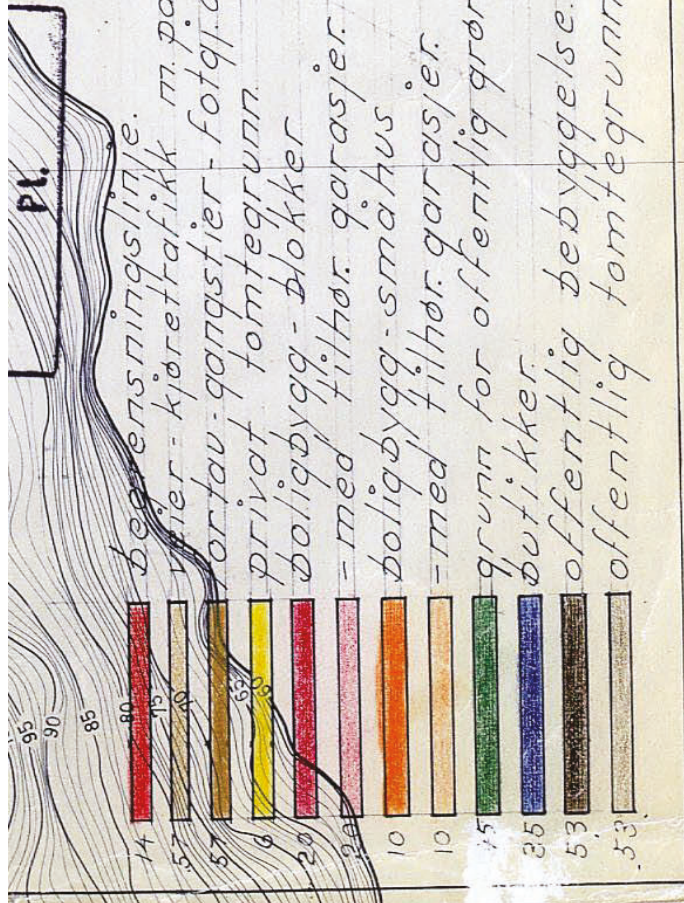 Pl.
14 begrensningslinje.
57 veier - kjøretrafikk m. pa
57 fortau - gangstier - fotgj.
6 privat tomtegrunn
20 boligbygg - blokker
20 - med tilhør. garasjer.
10 boligbygg - småhus
10 - med tilhør. garasjer.
45 grunn for offentlig grøn
35 butikker.
53 offentlig bebyggelse.
53. offentlig tomtegrunn
95
90
85
80
75
70
65
60